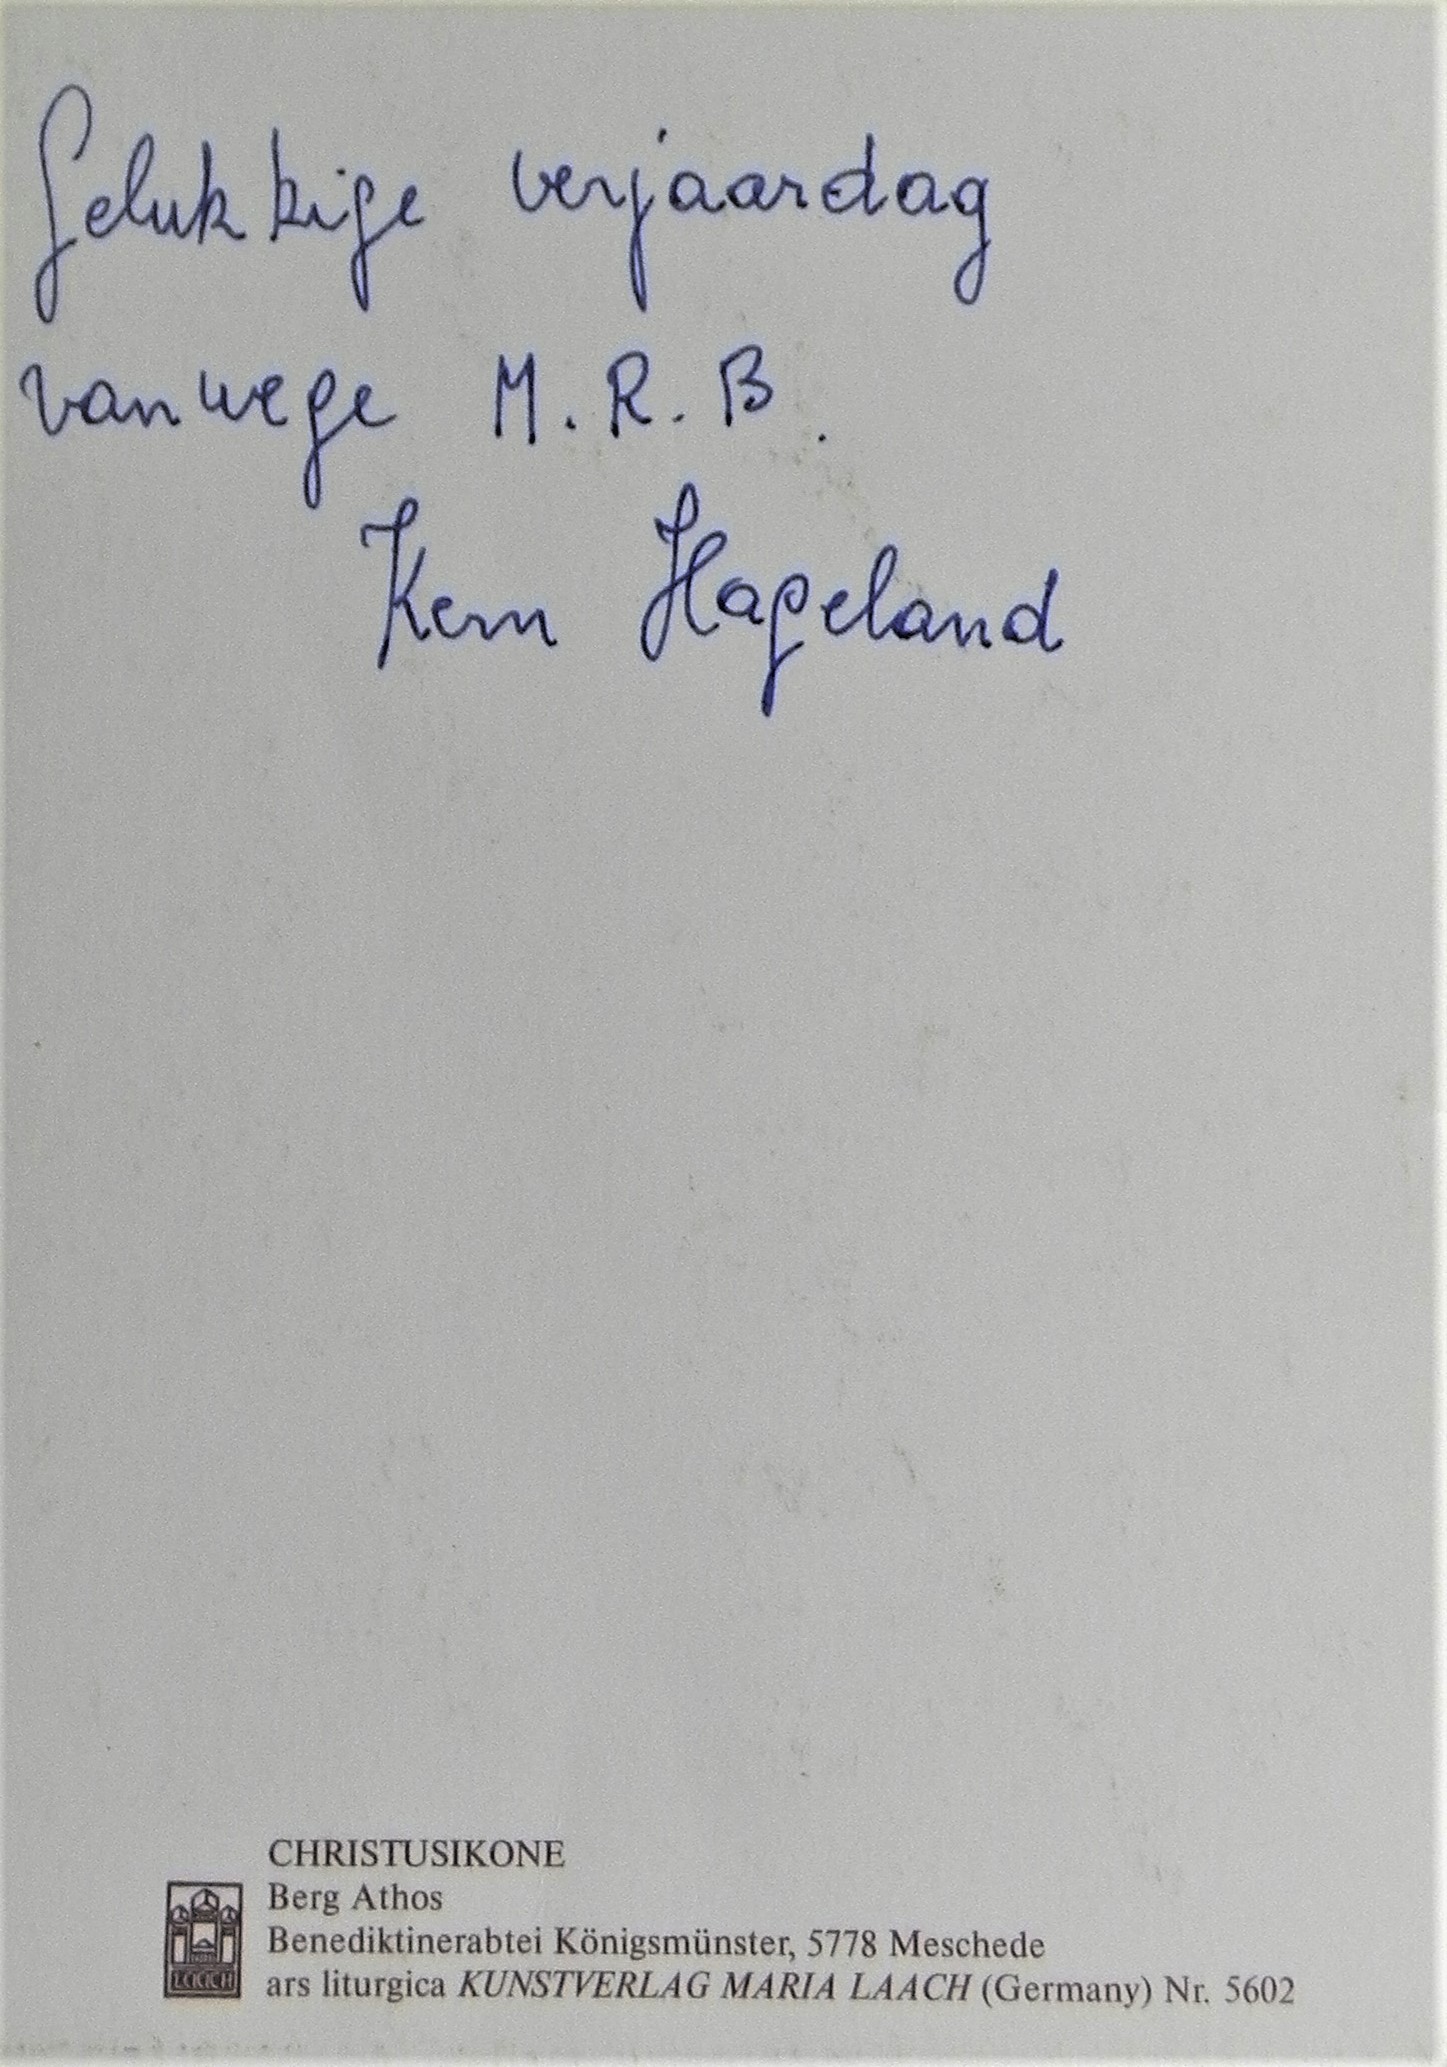 Gelukkige verjaardag
vanwege M.R.B.
Kern Hageland
CHRISTUSIKONE
Berg Athos
Benediktinerabtei Königsmünster, 5778 Meschede
ars liturgica KUNSTVERLAG MARIA LAACH (Germany) Nr. 5602
LAACH